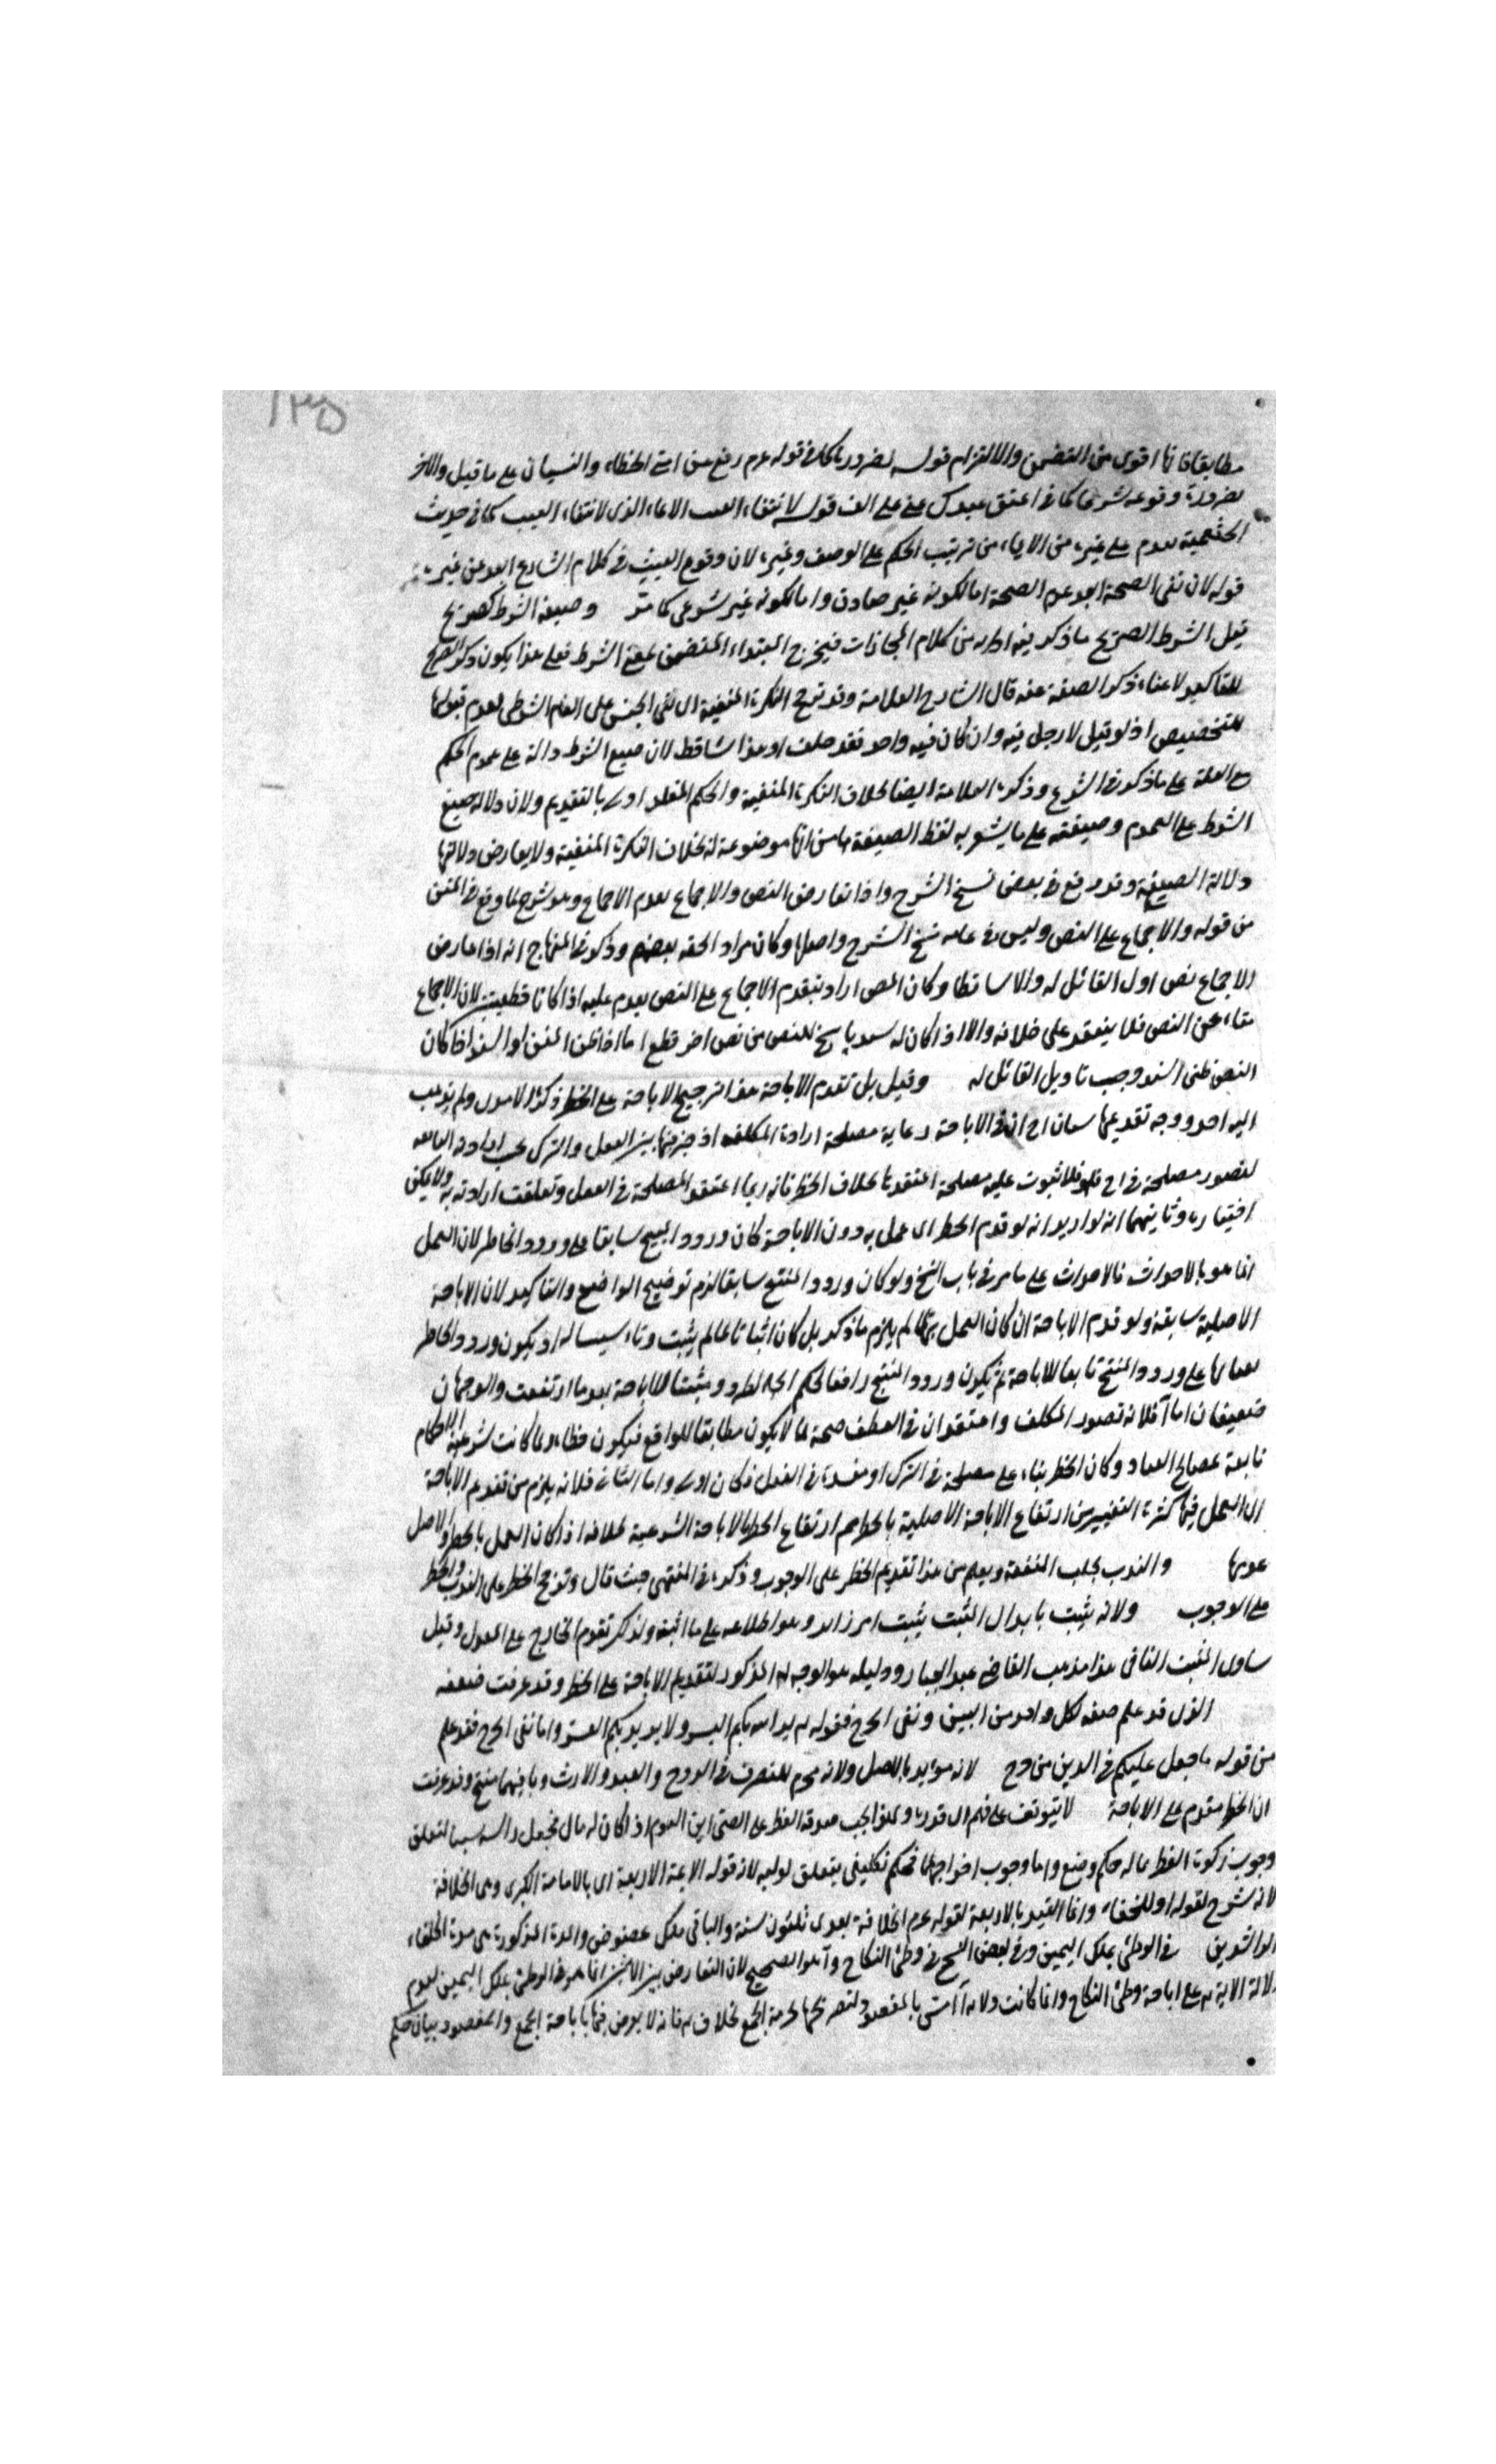 ١٣٥
مطابقا فانها اقوى من التضمن والالتزام قوله لضرورة كما في قوله عم رفع عن امتي الخطاء والنسيان على ما قيل والاخر
لضرورة وقوعه شرعا كما في اعتق عبدك عني على الف قوله لانتفاء العبث الايماء الذي لانتفاء العبث كما في حديث
الخثعمية يقدم على غيره من الايماء من ترتيب الحكم على الوصف وغيره لان وقوع العبث في كلام الشارع ابعد من غيره
قوله لان نفي الصحة ابعد عدم الصحة اما لكونه غير صادق واما لكونه غير شرعي كما مر وصيغة الشرط كصريح
قيل الشرط الصريح ما ذكر فيه اداته من كلام المجازات فيخرج المبتداء المتضمن لمعنى الشرط فعلى هذا يكون ذكر الصريح
للتاكيد لاغناء ذكر الصيغة عنه قال الشارح العلامة وقد ترجح النكرة المنفية اي لنفي الجنس على العام الشرطي لعدم قبولها
للتخصيص اذ لو قيل لا رجل فيه وان كان فيه واحد فقد خلف وهذا ساقط لان صيغ الشرط دالة على عموم الحكم
مع العلة على ما ذكر في الشرح وذكره العلامة ايضا بخلاف النكرة المنفية والحكم المعلل اولى بالتقديم ولان دلالة صيغ
الشرط على العموم وصيغته على ما يشعر به لفظ الصيغة مامن انها موضوعة له بخلاف النكرة المنفية ولا يعارض دلالتها
دلالة الصيغة وقد وقع في بعض نسخ الشرح واذا تعارض النص والاجماع يقدم الاجماع وهو شرح لما وقع في المتن
من قوله والاجماع على النص وليس في عامه نسخ الشرح واصلها وكان مراد الحقه بعضهم وذكر في المنهاج انه اذا عارض
الاجماع نص اول القائل له والا تساقطا وكان المص اراد بتقدم الاجماع على النص يقدم عليه اذا كانا قطعيين لان الاجماع
متاء عن النص فلا ينعقد على خلافه والا اذا كان له سند ناسخ للنص من نص اخر قطع اما اذا ظن المتن او السند اذا كان
النص ظني السند وجب تاويل القائل له وقيل بل تقدم الاباحة هذا ترجيح الاباحة على الحظر ذكره الامدي ولم يذهب
اليه احد ووجه تقديمها ان في الاباحة رعاية مصلحة ارادة المكلف اذ خير فيها بين الفعل والترك بحسب ارادته
لتصور مصلحة في فلا ثبوت عليه مصلحة اعتقدها بخلاف الحظر فانه ربما اعتقد المصلحة في الفعل وتعلقت ارادته به ولا يمكن
اختياره وثانيهما انه لو اريد انه لو قدم الحظر اي عمل به دون الاباحة كان ورود المبيح سابقا على ورود الحاظر لان العمل
انما هو بالاحدث فالاحدث على ما مر في باب النسخ ولو كان ورود المبيح سابقا لزم توضيح الواضح والتاكيد لان الاباحة
الاصلية سابقة ولو قدم الاباحة ان كان العمل بها لم يلزم ما ذكر بل كان اثباتا لما لم يثبت وتاسيسا له اذ يكون ورود الحاظر
على ورود المبيح تابعا للاباحة ثم يكون ورود المبيح رافعا لحكم الحاظر ومثبتا للاباحة بعد ما ارتفعت والوجهان
ضعيفان اما آ فلانه تصور المكلف واعتقد ان في الفعل صحة لما لا يكون مطابقا للواقع فيكون خطاء ولما كانت شرعية الاحكام
تابعة لمصالح العباد وكان الحظر بناء على مصلحة في الترك او مفسدة في الفعل فكان اولى واما الثاني فلانه يلزم من تقديم الاباحة
اي العمل فيها كثرة التغيير من ارتفاع الاباحة الاصلية بالحظر ثم ارتفاع الحظر بالاباحة الشرعية بخلافه اذا كان العمل بالحظر والاصل
عدمها والندب لجلب المنفعة ويعلم من هذا تقديم الحظر على الوجوب وذكره في المنتهى حيث قال وترجح الحظر على الندب والحظر
على الوجوب ولانه يثبت المثبت يثبت امر زائد وهو اطلاعه على ما اثبته ولذلك تقدم الجارح على المعدل وقيل
ساوى المثبت النافي هذا مذهب القاضي عبد الجبار ودليله هو الوجه المذكور لتقديم الاباحة على الحظر وقد عرفت ضعفه
الذي قد علم صفة لكل واحد من اليسر ونفي الحرج فقوله يريد الله بكم اليسر ولا يريد بكم العسر واما نفي الحرج فقد علم
من قوله ما جعل عليكم في الدين من حرج لانه مؤيد بالاصل ولانه محرم للتصرف في الزوج والعبد والارث وباقيهما مبيح وقد عرفت
ان الحظر مقدم على الاباحة لا يتوقف على فهم ال قدرة ولهذا يجب صدقة الفطر على الصبي ابن اليوم اذا كان له مال فجعل راسه سببا لتعلق
وجوب زكوة الفطر بما له حكم وضع واما وجوب اخراجها فحكم تكليفي يتعلق لوليه لانه قوله الائمة الاربعة اي بالامامة الكبرى وهي الخلافة
لانه شرح لقوله او للخلفاء وانما القيد بالاربعة لقوله عم الخلافة بعدي ثلثون سنة والباقي ملك عضوض والمدة المذكورة هي مدة الخلفاء
الراشدين في الوطئ بملك اليمين وفي بعض النسخ في وطئ النكاح وآ هو الصحيح لان التعارض بين الايتين انما هو في الوطئ بملك اليمين لعدم
دلالة الاية على اباحة وطئ النكاح وانما كانت دلالة آ امس بالمقصود لتصريحها بحرمة الجمع بخلاف فانه لا يعرض فيها باباحة الجمع والمقصود بيان حكم